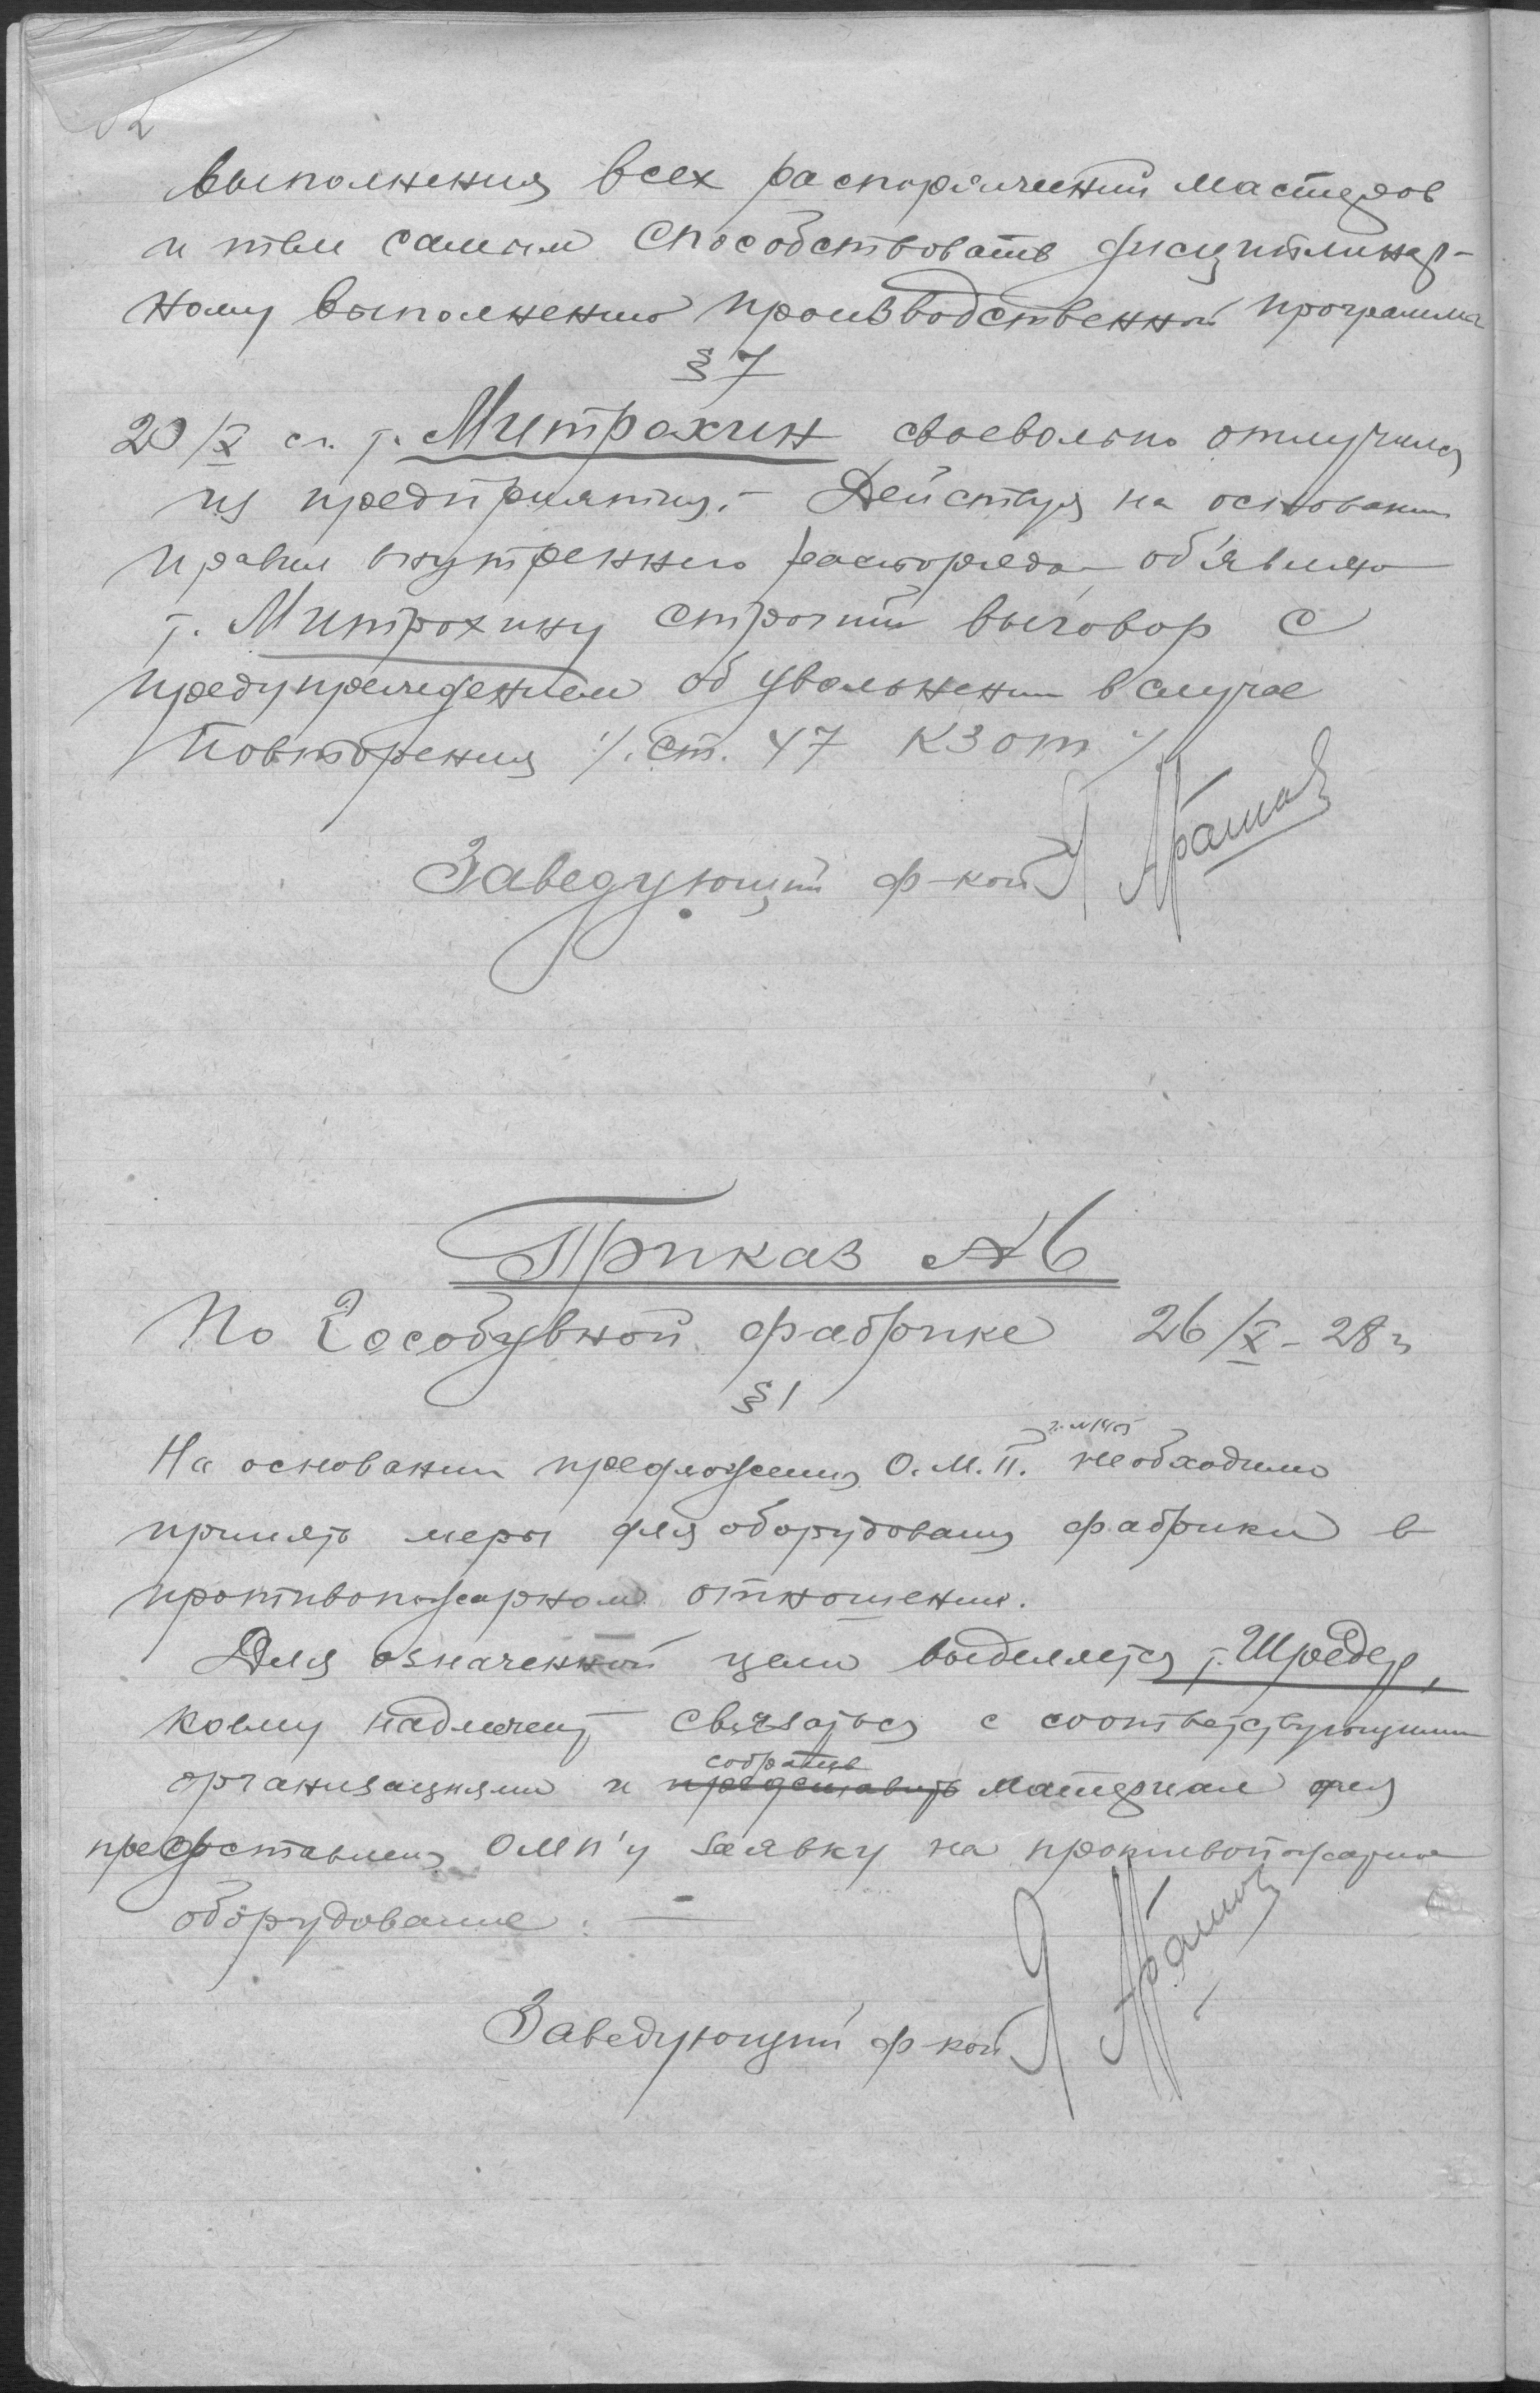 выполнения всех распоряжений мастеров
и тем самым способствовать дисциплинар-
ному выполнению производственной программы
§ 7
20/X с.г. т. Митрохин своевольно отлучился
из предприятия. - Действуя на основании
правил внутреннего распорядка об'являю
т. Митрохину строгий выговор с
предупреждением об увольнении в случае
повторения /. ст. 47 КЗот ./
Заведующий ф-кой Я
Приказ № 6
По Гособувной фабрике 26/X - 28 г
§ 1
На основании предложения О.М.П. необходимо
принять меры для оборудования фабрики в
противопожарном отношении.
Для означенной цели выделяется т. Шредер,
коему надлежит связаться с соответствующими
собрать
организациями и представить материал для
предоставления ОМП'у заявку на противопожарное
оборудование. —
Заведующий ф-кой Я